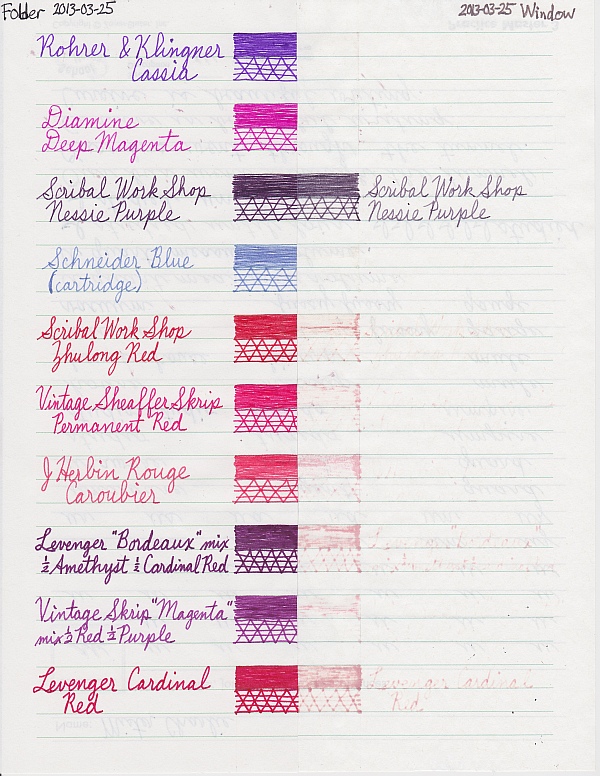 Folder 2013-03-25
2013-03-25 Window
Rohrer & Klingner
Cassia
Diamine
Deep Magenta
Scribal Work Shop
Nessie Purple
Scribal Work Shop
Nessie Purple
Schneider Blue
(cartridge)
Scribal Work Shop
Zhulong Red
Vintage Sheaffer Skrip
Permanent Red
J Herbin Rouge
Caroubier
Levenger "Bordeaux" mix
½ Amethyst ½ Cardinal Red
Vintage Skrip "Magenta"
mix ½ Red ½ Purple
Levenger Cardinal
Red
Levenger Cardinal
Red